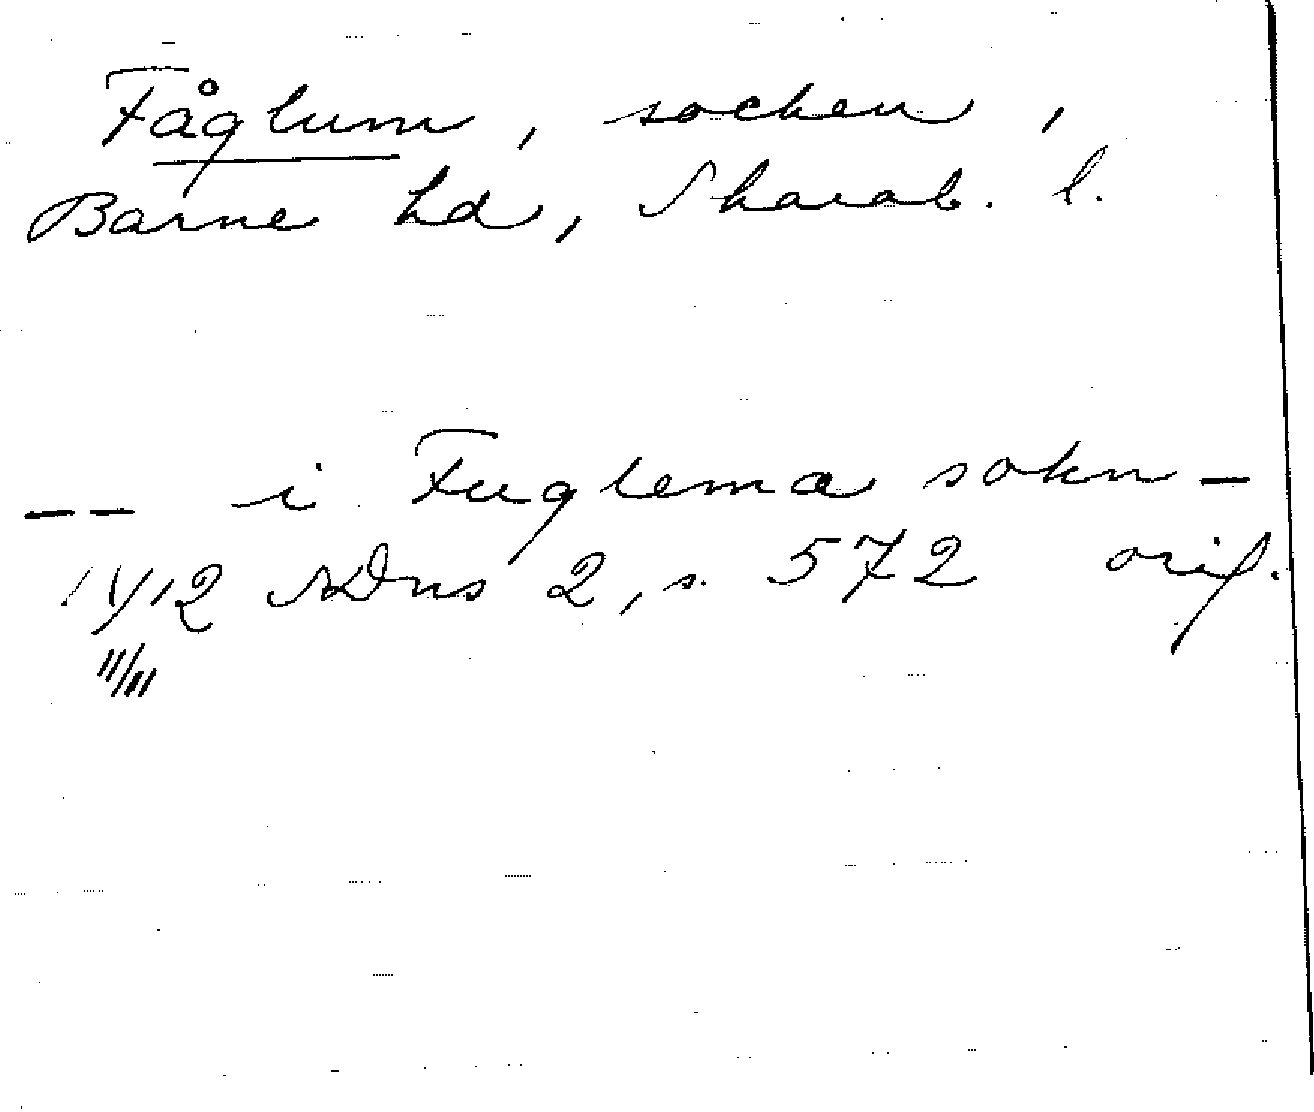 Fåglum, socken,
Barne hd, Skarab. l.
-- i Fuglema sokn -
1412 SDns 2, s. 572 orig.
11/11